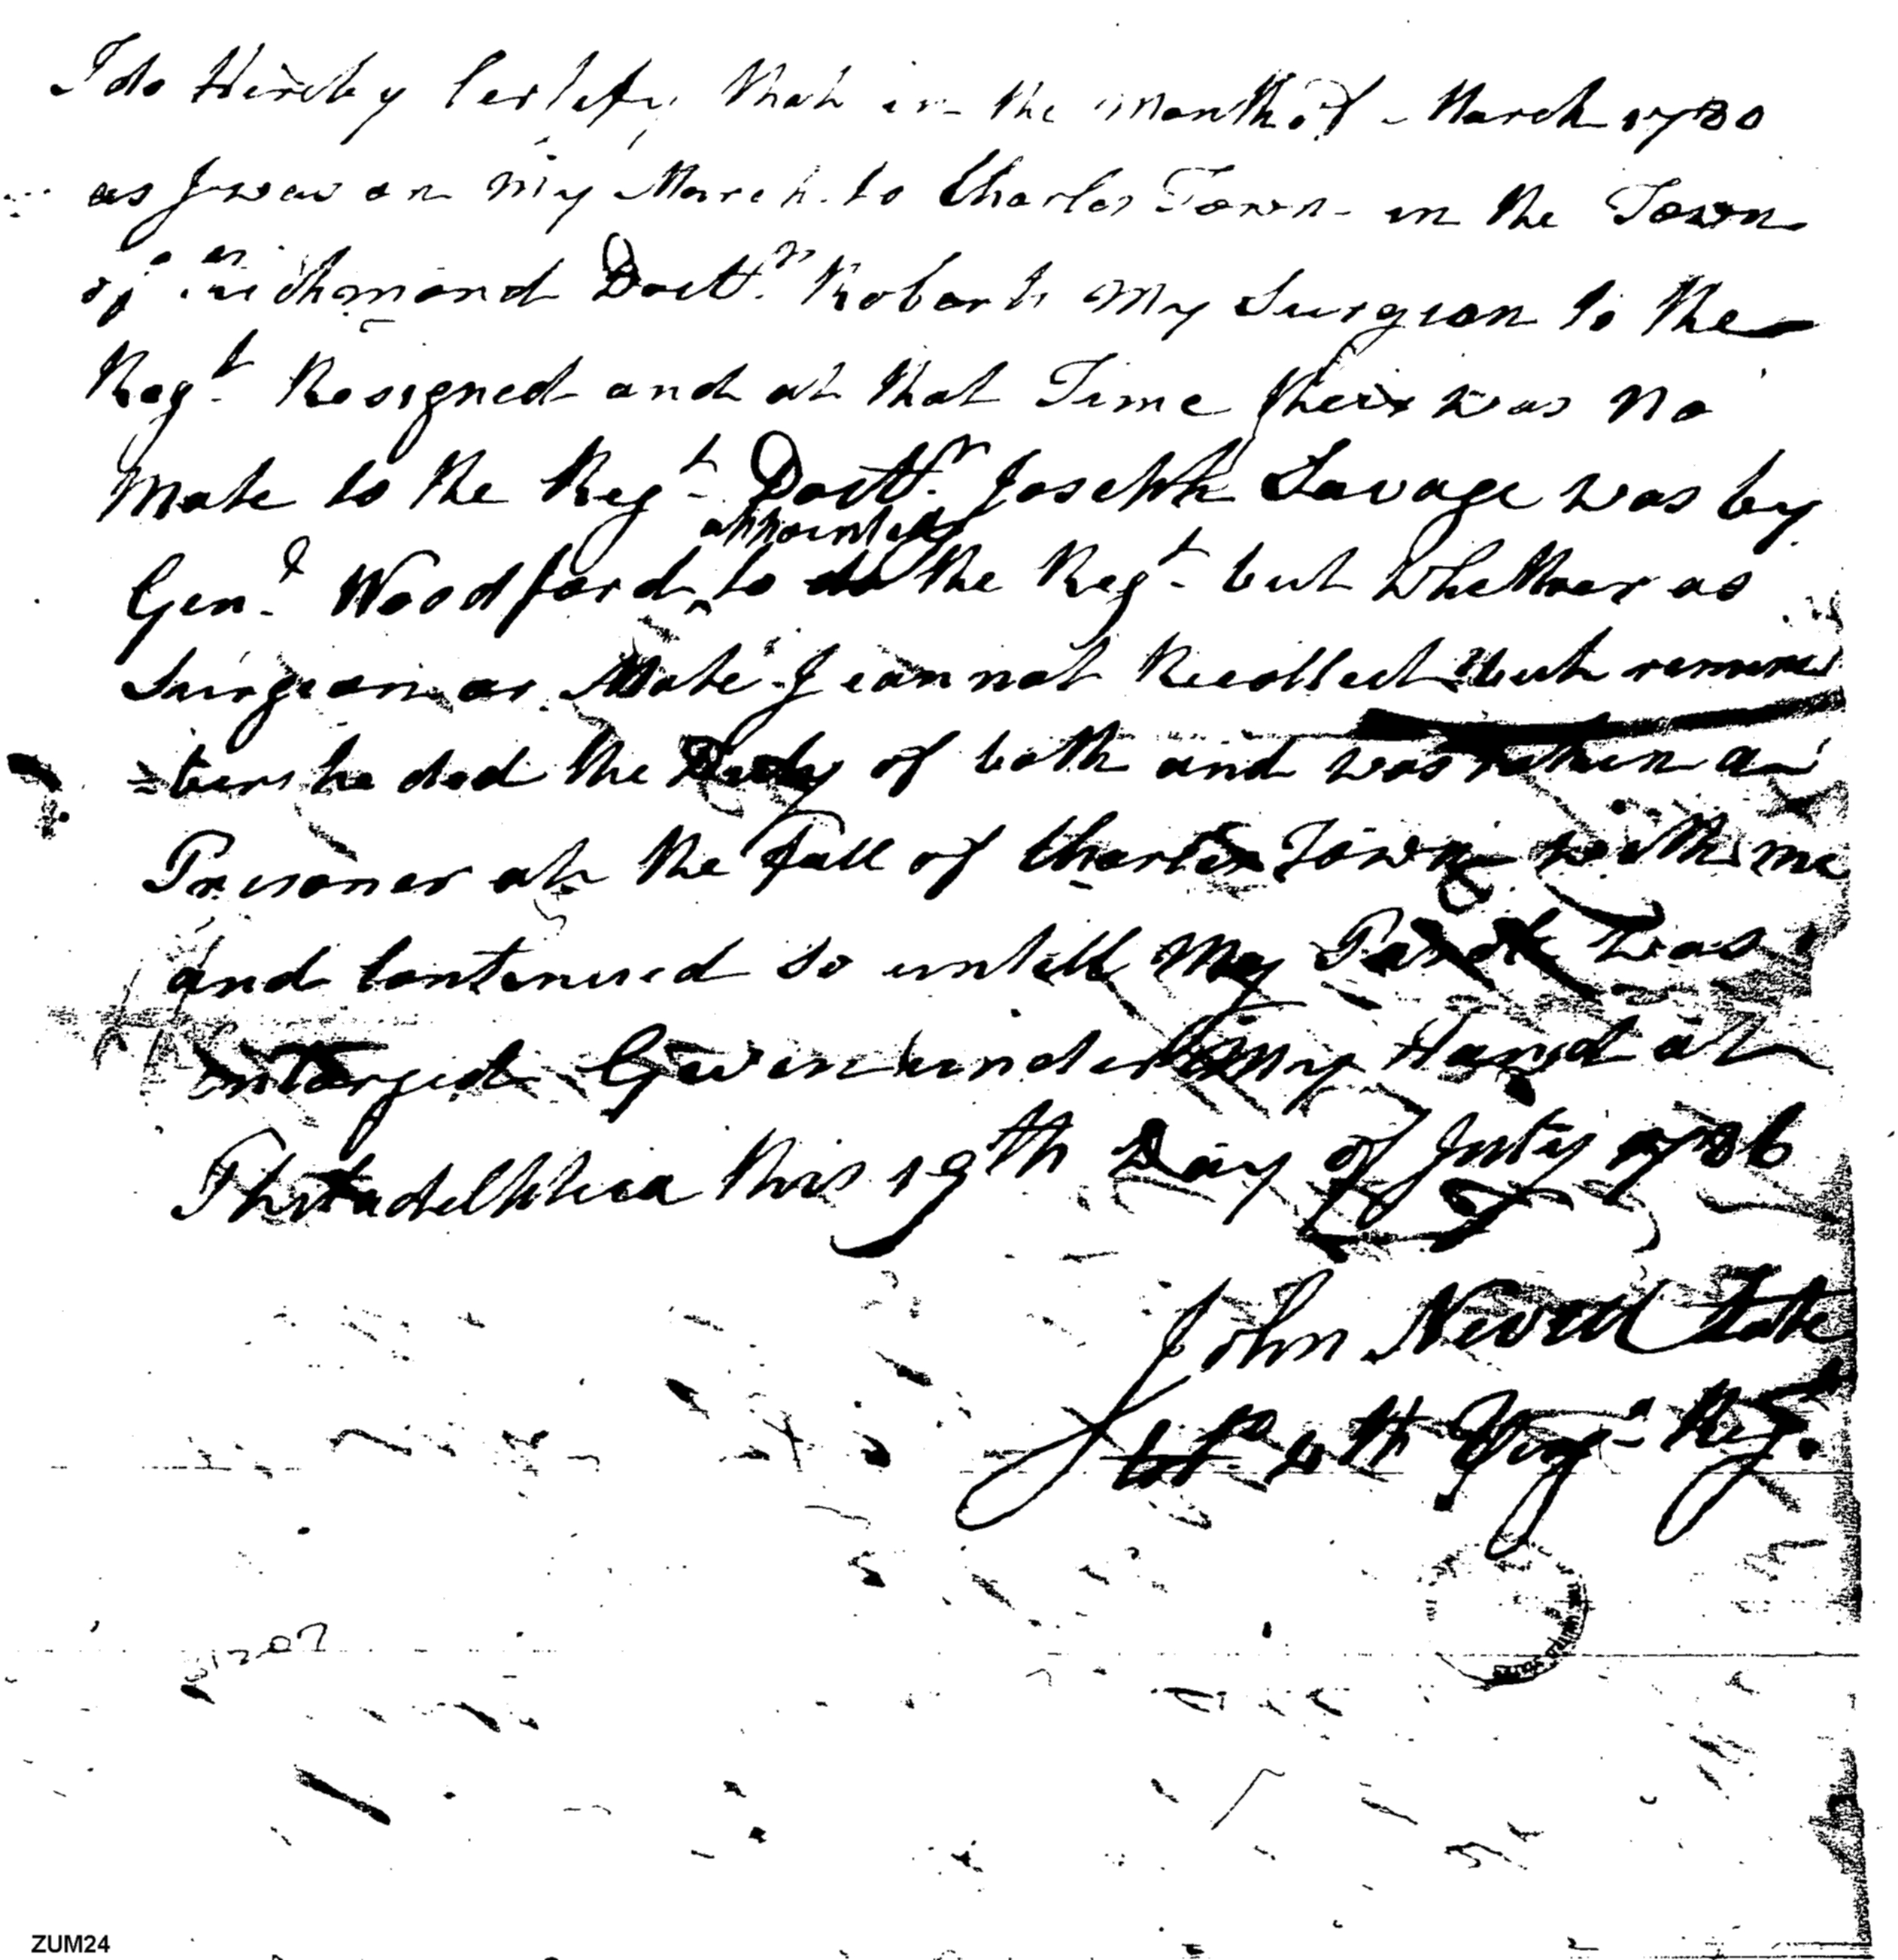 I do Hereby Certify that in the month of March 1780
as I was on my March to Charles Town in the Town
of Richmond Doctr. Roberts my Surgeon to the
Regt. Resigned and at that Time their was no
mate to the Regt. Doctr. Joseph Savage was by
appointed
Genl. Woodford ^ to do the Regt. but whether as
Surgeon or Mate I can not Recollect but remem
=bers he did the Duty of both and was taken a
Prisoner at the Fall of Charles Town with me
and Continued so untill my Parole was
Given under my Hand at
Philadelphia this 19th Day of July 1786
John Nevill late
4th Virga. Regt.
ZUM24